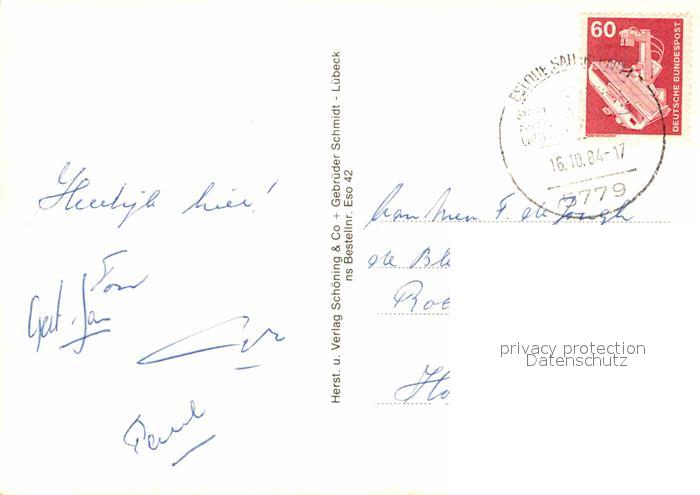 Heerlijk hier!
Tom
Gert-Jan
Paul
Herst. u. Verlag Schöning & Co + Gebrüder Schmidt - Lübeck
ns Bestellnr. Eso 42
60
DEUTSCHE BUNDESPOST
ESLOHE, SAUERLAND
16.10.84-17
5779
F. de Jongh
de Ble
Roo
Ho
privacy protection
Datenschutz